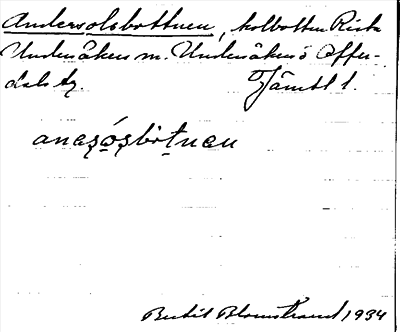 Andersolsbottnen, kolbotten Rista
Undersåkers sn. Undersåkers o Offer-
dals tg. Jämtl l.
anaʂóʂbòtnen
Bertil Blomstrand 1934